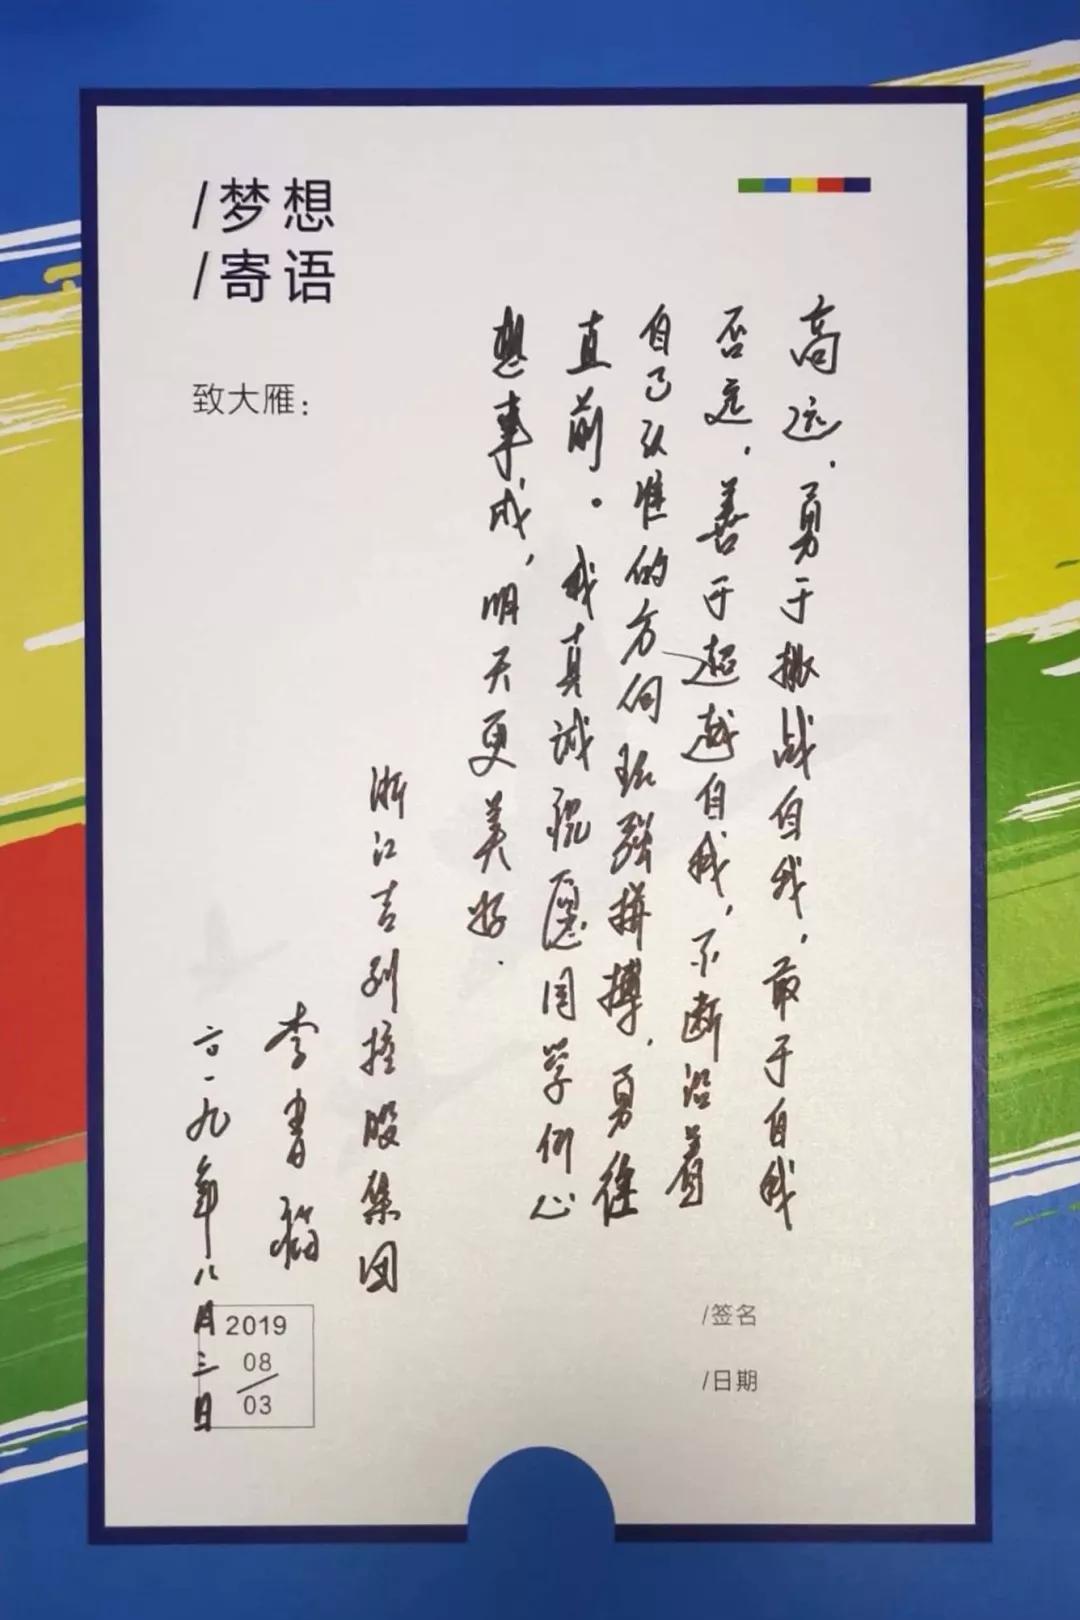 /梦想
/寄语
致大雁：
高远，勇于挑战自我，敢于自我
否定，善于超越自我，不断沿着
自己认准的方向顽强拼搏，勇往
直前。我真诚祝愿同学们心
想事成，明天更美好.
浙江吉利控股集团
李书福
二〇一九年八月三日
2019
08
03
/签名
/日期